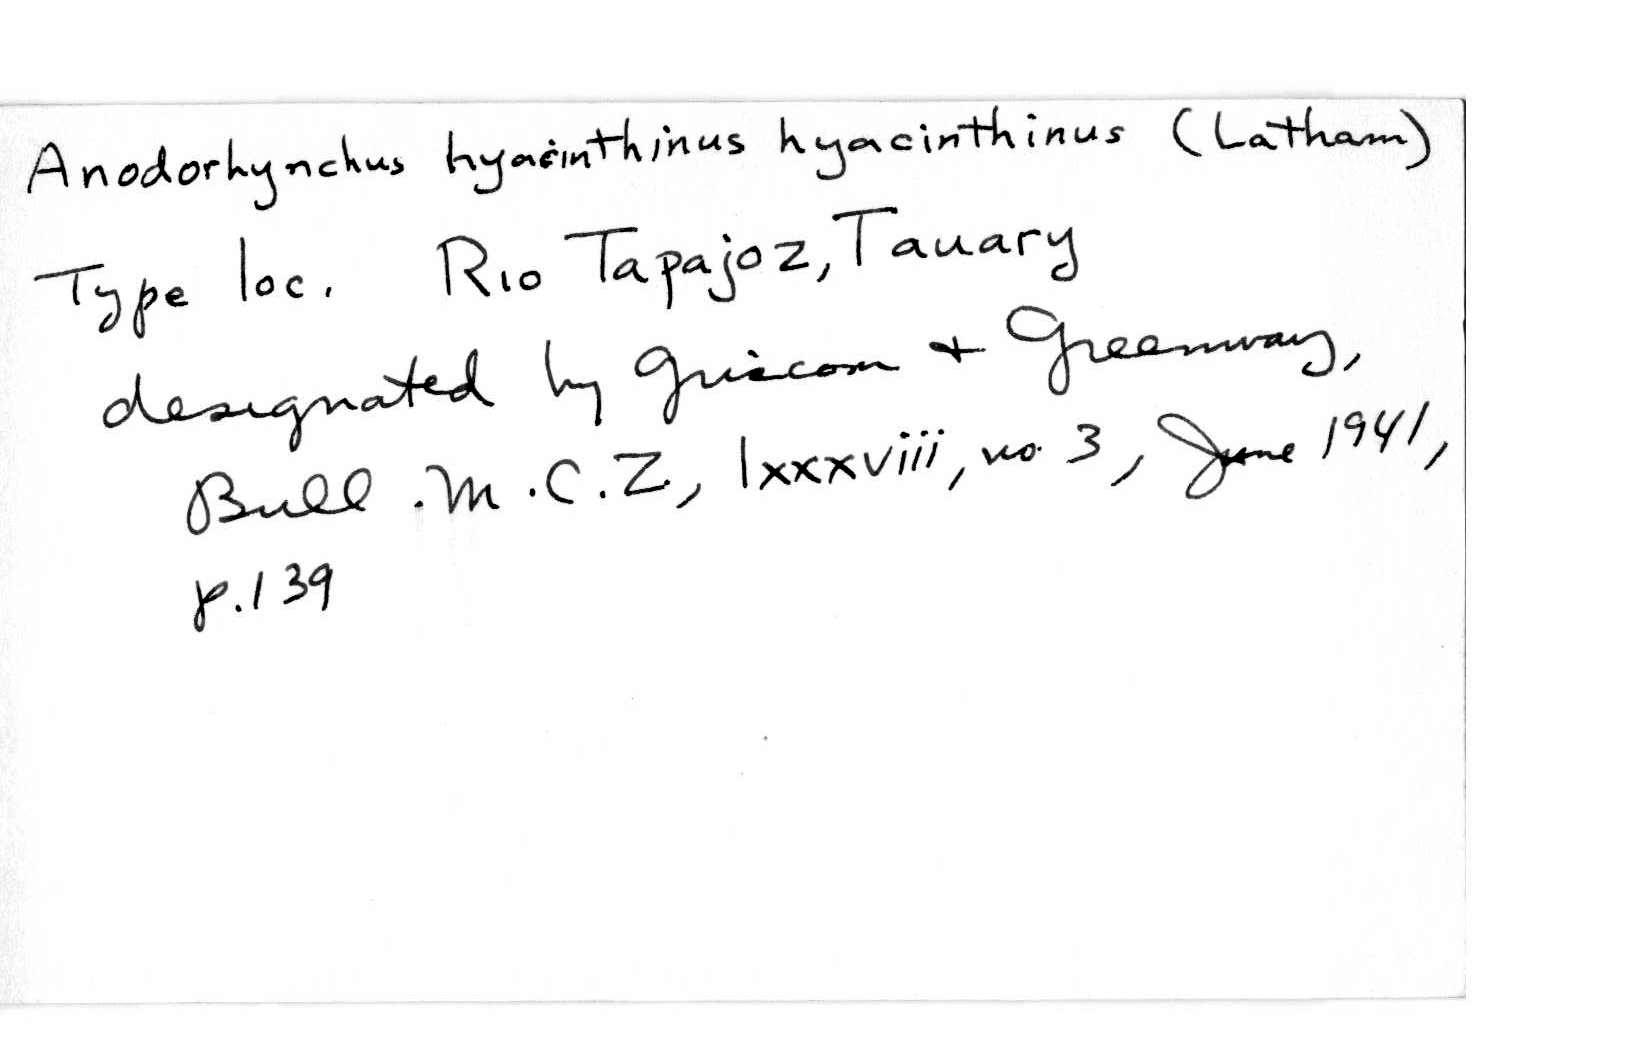 Anodorhynchus hyacinthinus hyacinthinus (Latham)
Type loc. Rio Tapajoz, Tauary
designated by Griscom + Greenway,
Bull. M.C.Z, lxxxviii, no. 3, June 1941,
p.139